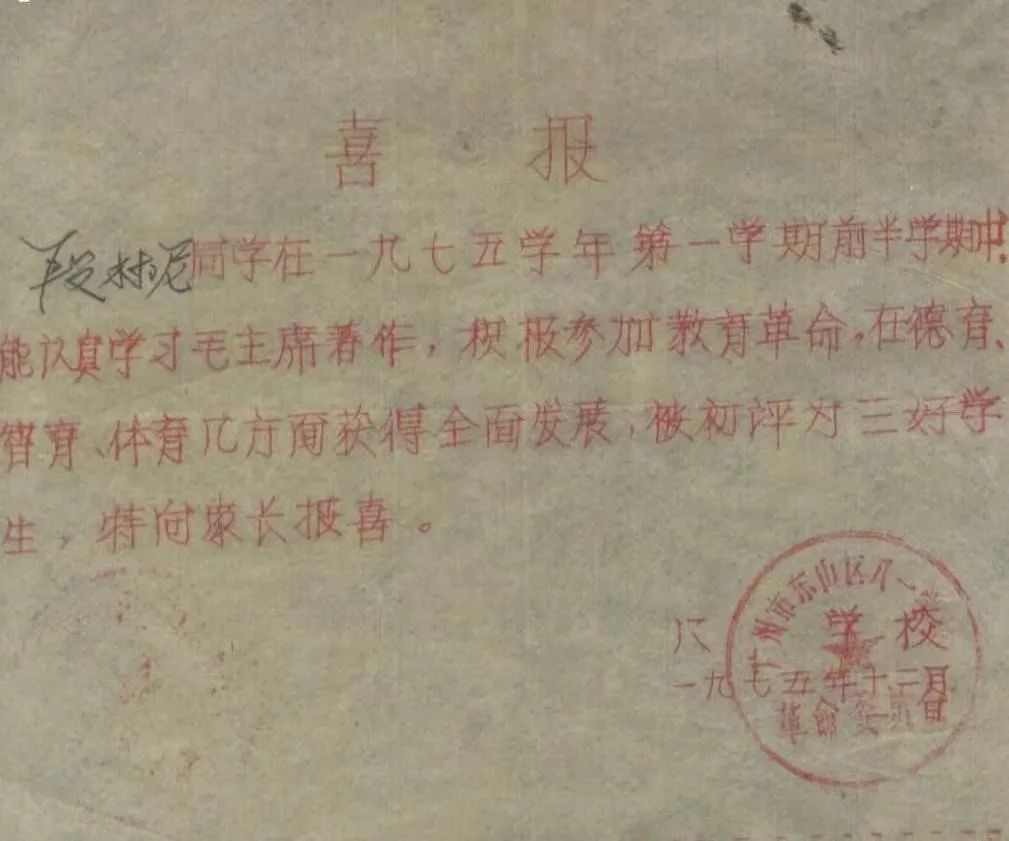 喜报
段林尼同学在一九七五学年第一学期前半学期中,
能认真学习毛主席著作,积极参加教育革命,在德育、
智育、体育几方面获得全面发展,被初评为三好学
生,特向家长报喜。
广州市东山区八一
学校
一九七五年十二月
革命